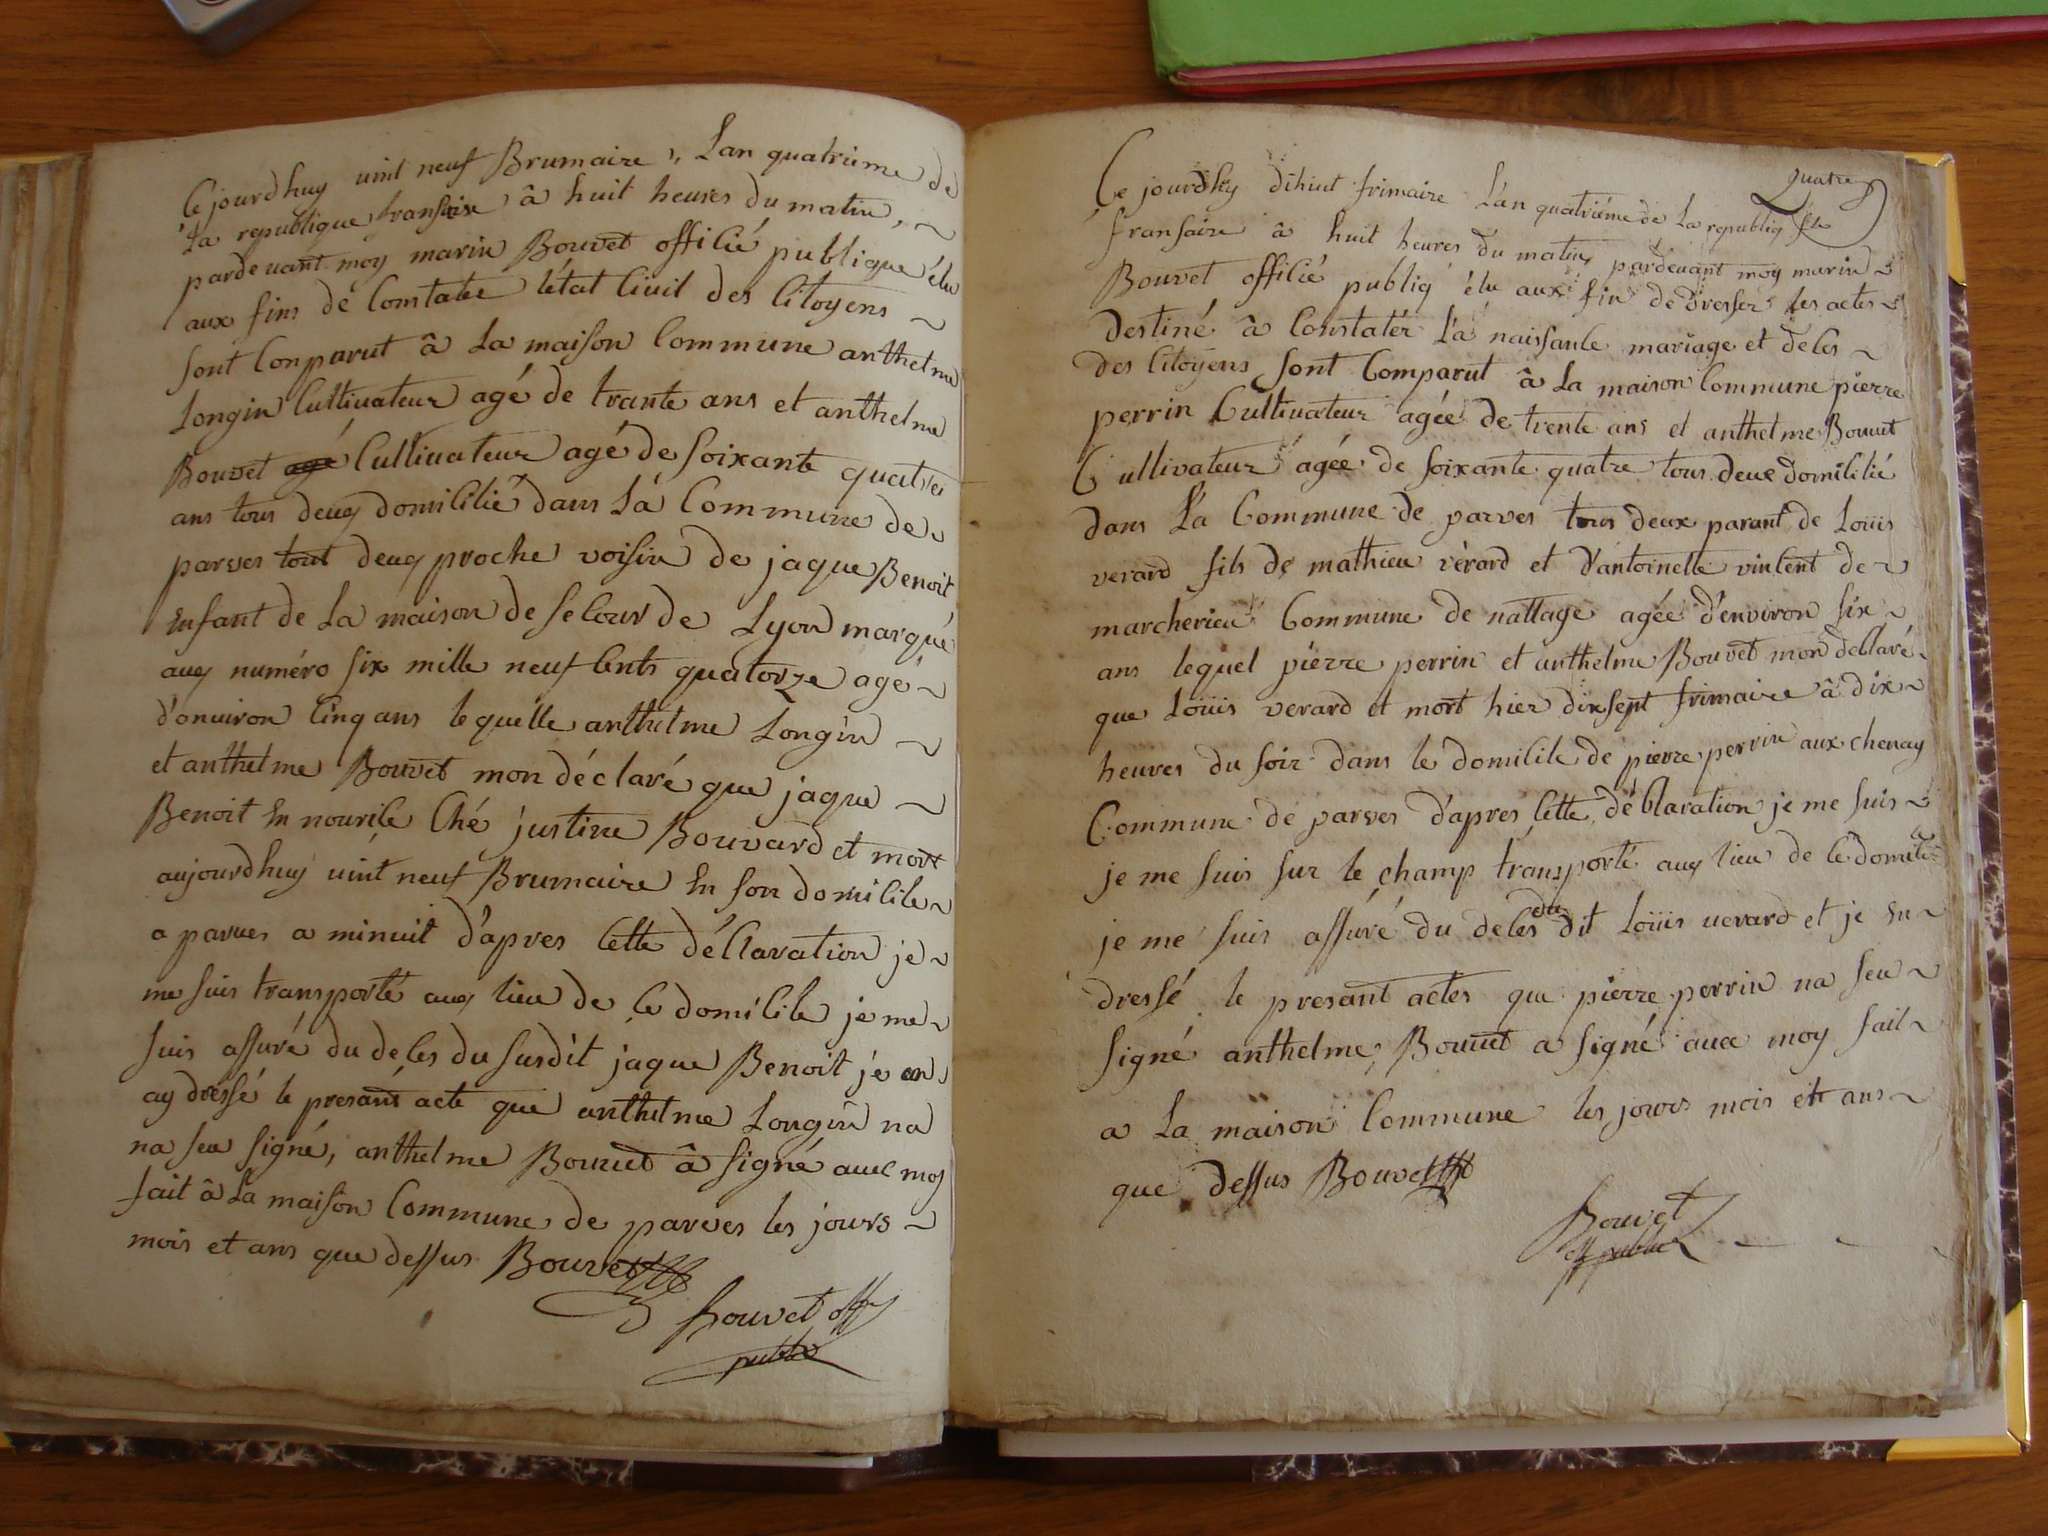 Ce jourdhuy vint neuf Brumaire, Lan quatrieme de
La republique fransaise â huit heures du matin,
pardevant moy marin Bouvet offilié publique élu
aux fins de Constatee létat Civil des Citoyens
sont Conparut â La maison Commune anthelme
Longin Cultivateur agé de trante ans et anthelme
Bouvet agé Cultivateur agé de soixante quatre
ans tous deux domililié dans La Commune de
parves tout deux proche voisin de jaque Benoit
Enfant de La maison de selour de Lyon marqué
aux numéro six mille neuf Cents quatorze agé
d'environ Cinq ans lequelle anthelme Longin
et anthelme Bouvet mon déclaré que jaque
Benoit En nourile Ché justine Bouvard et mort
aujourdhuy vint neuf Brumaire En son domilile
a parves a minuit d'apres Cette déClaration je
me suis transporté aux lieu de Ce domilile je me
suis assuré du deles du susdit jaque Benoit je en
ay dressé le presant acte que anthelme Longin na
na seu signé, anthelme Bouvet â signé avec moy
fait â La maison Commune de parves les jours
mois et ans que dessus Bouvet
Bouvet off
public
quatre
Ce jourdhy dihiut frimaire L'an quatriéme de La republiq
fransaire â huit heures du matin pardevant moy marin
Bouvet offilié publiq élu aux fin de dresser les actes
Destiné â Constatér La naissanle mariage et deles
des Citoyens sont Comparut â La maison Commune pierre
perrin Cultivateur agée de trente ans et anthelme Bouvet
Cultivateur agée de soixante quatre tous deux domililié
dans La Commune de parves tous deux parant de Loüis
verard fils de mathieu verard et d'antoinette vinlent de
marcherieu Commune de nattage agée d'environ six
ans lequel pierre perrin et anthelme Bouvet mon déClaré
que Loüis verard et mort hier dixsept frimaire â dix
heures du soir dans le domilile de pierre perrin aux chenay
Commune de parves d'apres Cette déClaration je me suis
je me suis sur le champ transporté aux lieu de Ce domile
je me suis assuré du deles du dit Loüis verard et je En
dressé le presant actes que pierre perrin na seu
signé anthelme Bouvet a signé avec moy fait
a La maison Commune les jours mois et ans
que dessus Bouvet
Bouvet
off public